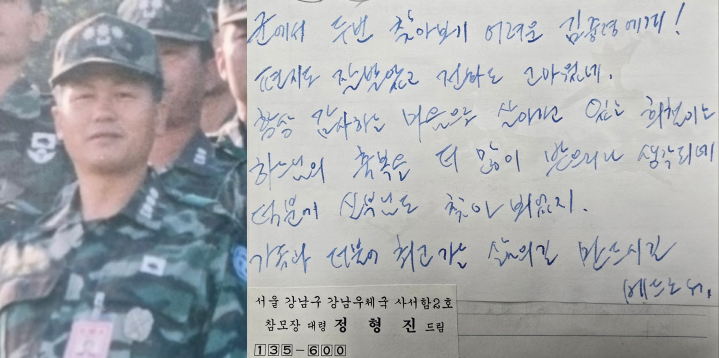 군에서 두번 찾아보기 어려운 김중령에게!
편지도 잘받았고 전화도 고마웠네.
항상 감사하는 마음으로 살아가고 있는 희천이는
하느님의 축복을 더 많이 받으리라 생각되네
덕분에 신부님도 찾아 뵈었지.
가족과 더불어 최고 가는 삶의길 만드시길
베드로
서울 강남구 강남우체국 사서함2호
참모장 대령 정형진 드림
135-600